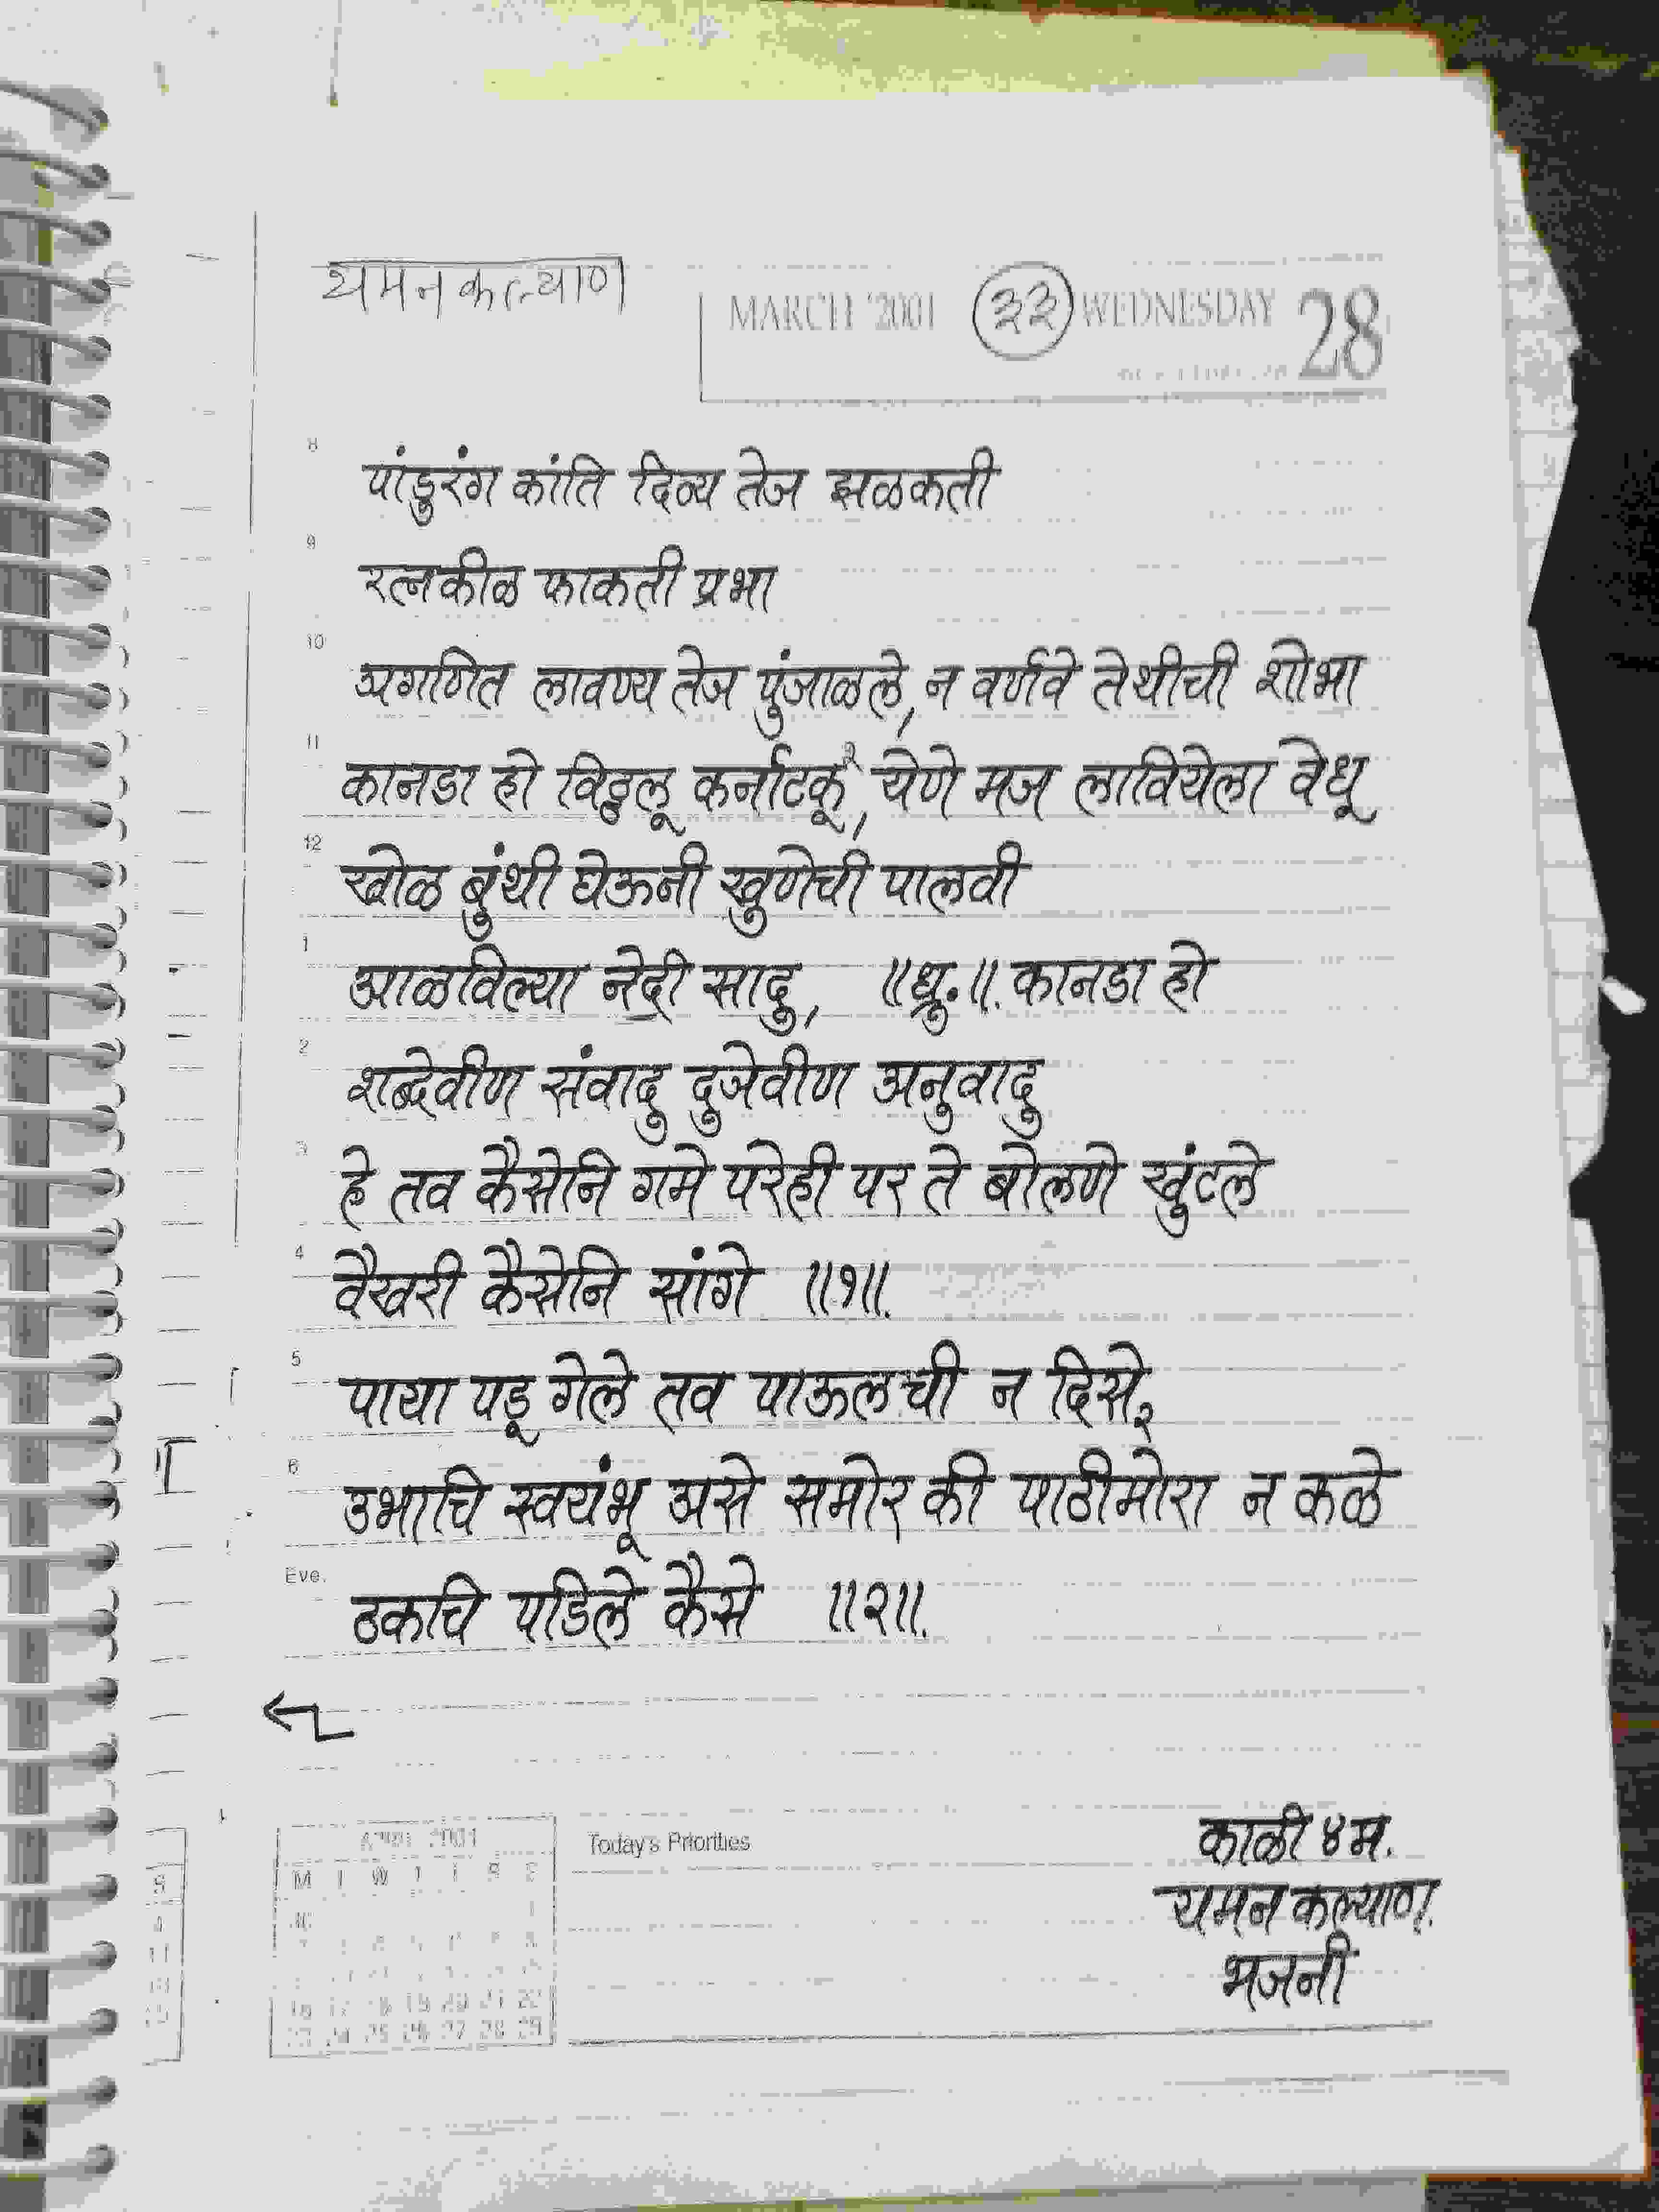 यमन कल्याण
MARCH '2001 ३३ WEDNESDAY 28
8
पांडुरंग कांति दिव्य तेज झळकती
9
रत्नकीळ फाकती प्रभा
10
अगणित लावण्य तेज पुंजाळले, न वर्णवे तेथीची शोभा
11
कानडा हो विठ्ठलू कर्नाटकू, येणे मज लावियेला वेधू
12
खोळ बुंथी घेऊनी खुणेची पालवी
1
आळविल्या नेदी सादु, ॥ध्रु.॥. कानडा हो
2
शब्देवीण संवादु दुजेवीण अनुवादु
3
हे तव कैसेनि गमे परेही पर ते बोलणे खुंटले
4
वैखरी कैसेनि सांगे ॥१॥.
5
पाया पडू गेले तव पाऊलची न दिसे,
6
उभाचि स्वयंभू असे समोर की पाठीमोरा न कळे
Eve.
ठकचि पडिले कैसे ॥२॥.
APRIL 2001
Today's Priorities
काळी ४ म.
यमन कल्याण.
भजनी